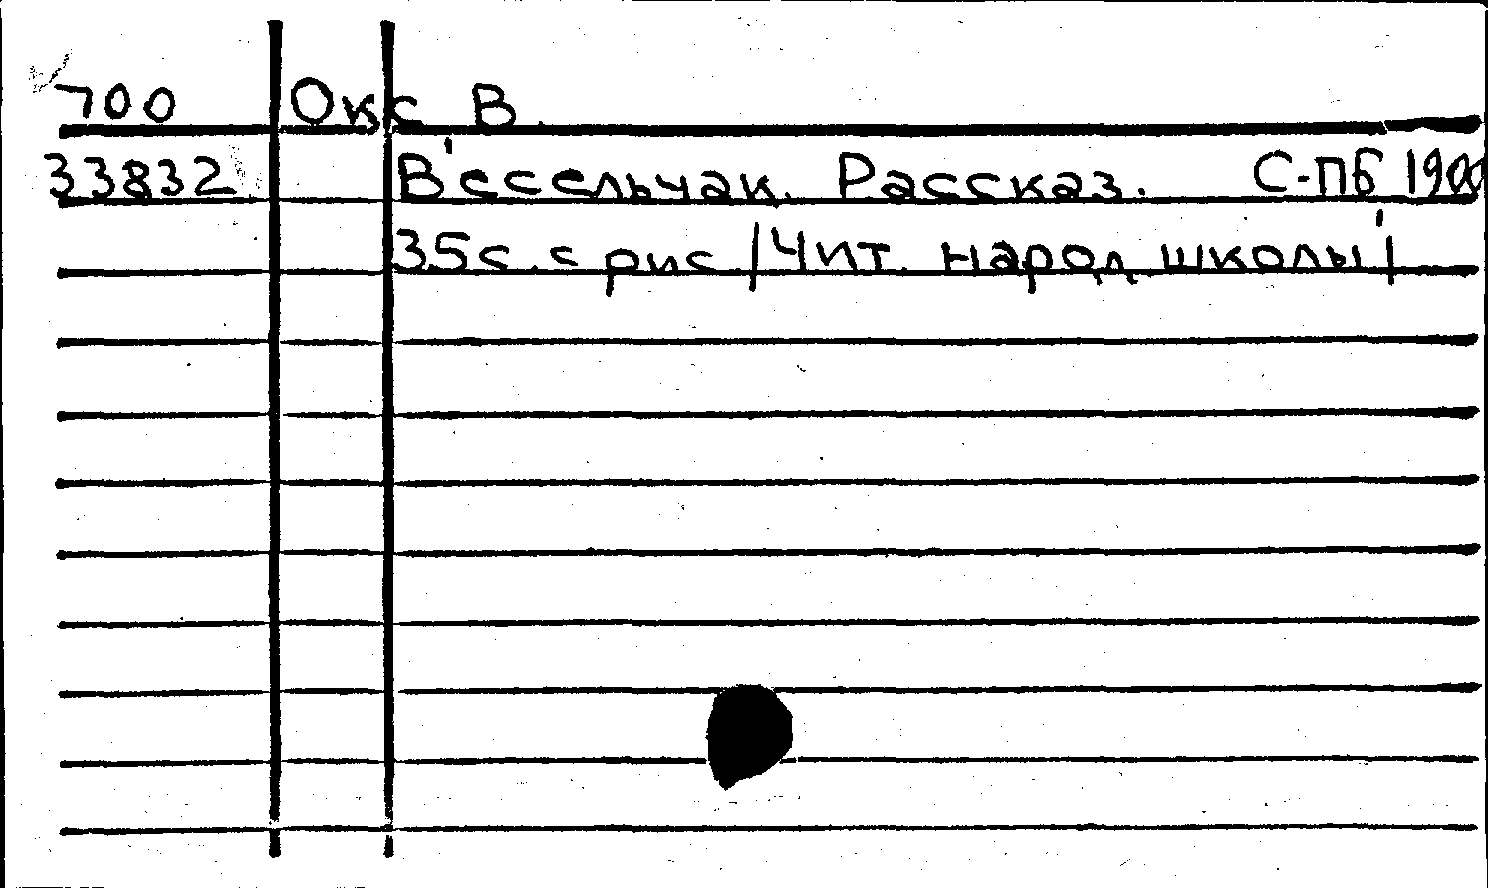 700 Окс В.
33832 Весельчак. Рассказ. С-Пб 1900
35с. с рис /Чит. народ. школы/